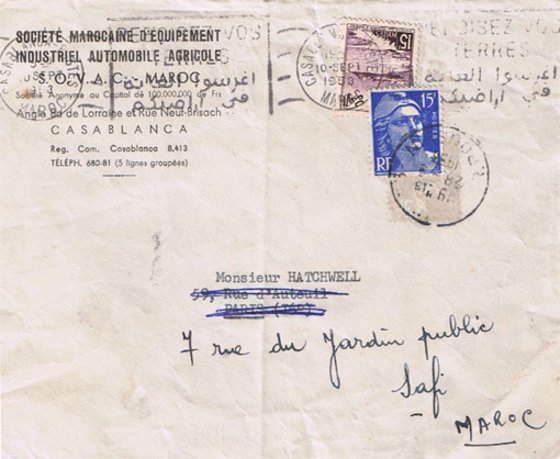 SOCIÉTÉ MAROCAINE D'ÉQUIPEMENT
INDUSTRIEL AUTOMOBILE AGRICOLE
S.O.V.A.C. - MAROC
Société Anonyme au Capital de 100.000.000 de Frs
Angle Bd de Lorraine et Rue Neuf-Brisach
CASABLANCA
Reg. Com. Casablanca 8,413
TÉLÉPH. 680-81 (5 lignes groupées)
BOISEZ VOS
TERRES
اغرسوا الغابة
في أراضيكم
CASABLANCA
10 SEPT
1950
MAROC
15F
15F
POSTES
RF
Monsieur HATCHWELL
59, Rue d'Auteuil
PARIS
7 rue du Jardin public
Safi
MAROC